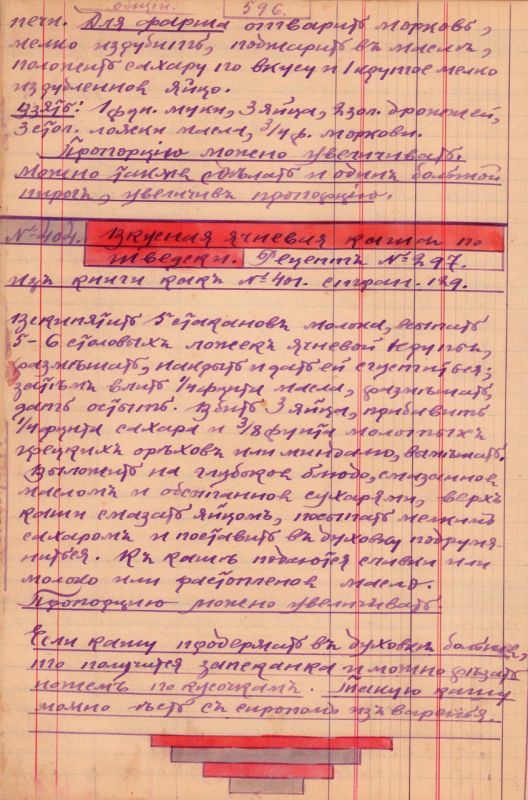 общеи.
596.
печи. Для фарша отварить морковь,
мелко изрубить, поджарить въ маслѣ,
положить сахару по вкусу и 1 крутое мелко
изрубленное яйцо.
Взять: 1 фун. муки, 3 яйца, 2 зол. дрожжей,
3 стол. ложки масла, 3/4 ф. моркови.
Пропорцію можно увеличивать.
Можно также сдѣлать и одинъ большой
пирогъ, увеличивъ пропорцію.
№ 404. Вкусная ячневая каша по
шведски. Рецептъ № 297.
изъ книги какъ № 401. стран. 129.
Вскипятить 5 стакановъ молока, всыпать
5-6 столовыхъ ложекъ ячневой крупы,
размѣшать, накрыть и дать ей сгуститься;
затѣмъ влить 1/4 фунта масла, размѣшать,
дать остыть. Взбить 3 яйца, прибавить
1/4 фунта сахара и 3/8 фунта молотыхъ
грецкихъ орѣховъ или миндалю, вымѣшать.
Выложить на глубокое блюдо, смазанное
масломъ и обсыпанное сухарями, верхъ
каши смазать яйцомъ, посыпать мелкимъ
сахаромъ и поставить въ духовку подрумя-
ниться. Къ кашѣ подаются сливки или
молоко или растопленое масло.
Пропорцію можно увеличивать.
Если кашу продержать въ духовкѣ больше,
то получится запеканка и можно рѣзать
ножемъ по кусочкамъ. Такую кашу
можно ѣсть съ сиропомъ изъ варенья.